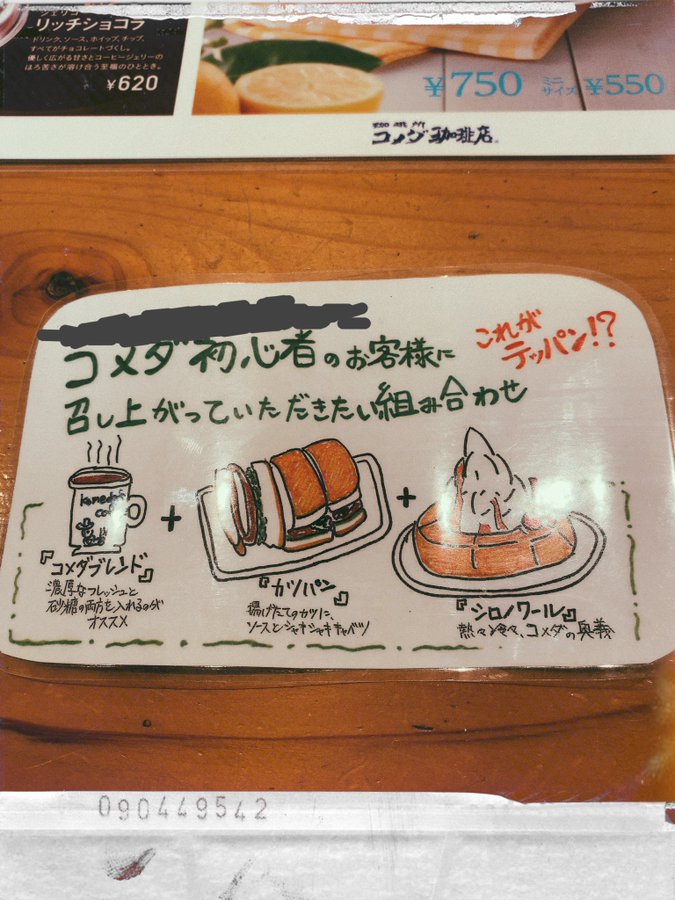 リッチショコラ
ドリンク、ソース、ホイップ、チップ、
すべてがチョコレートづくし。
優しく広がる甘さとコーヒージェリーの
ほろ苦さが溶け合う至福のひととき。
¥620
¥750 ミニサイズ ¥550
珈琲所
コメダ珈琲店
コメダ初心者のお客様に
召し上がっていただきたい組み合わせ
これが
テッパン!?
komeda's
coffee
+
+
『コメダブレンド』
濃厚なフレッシュと
砂糖の両方を入れるのが
オススメ
『カツパン』
揚げたてのカツに、
ソースとシャキシャキキャベツ
『シロノワール』
熱々冷々、コメダの奥義
090449542